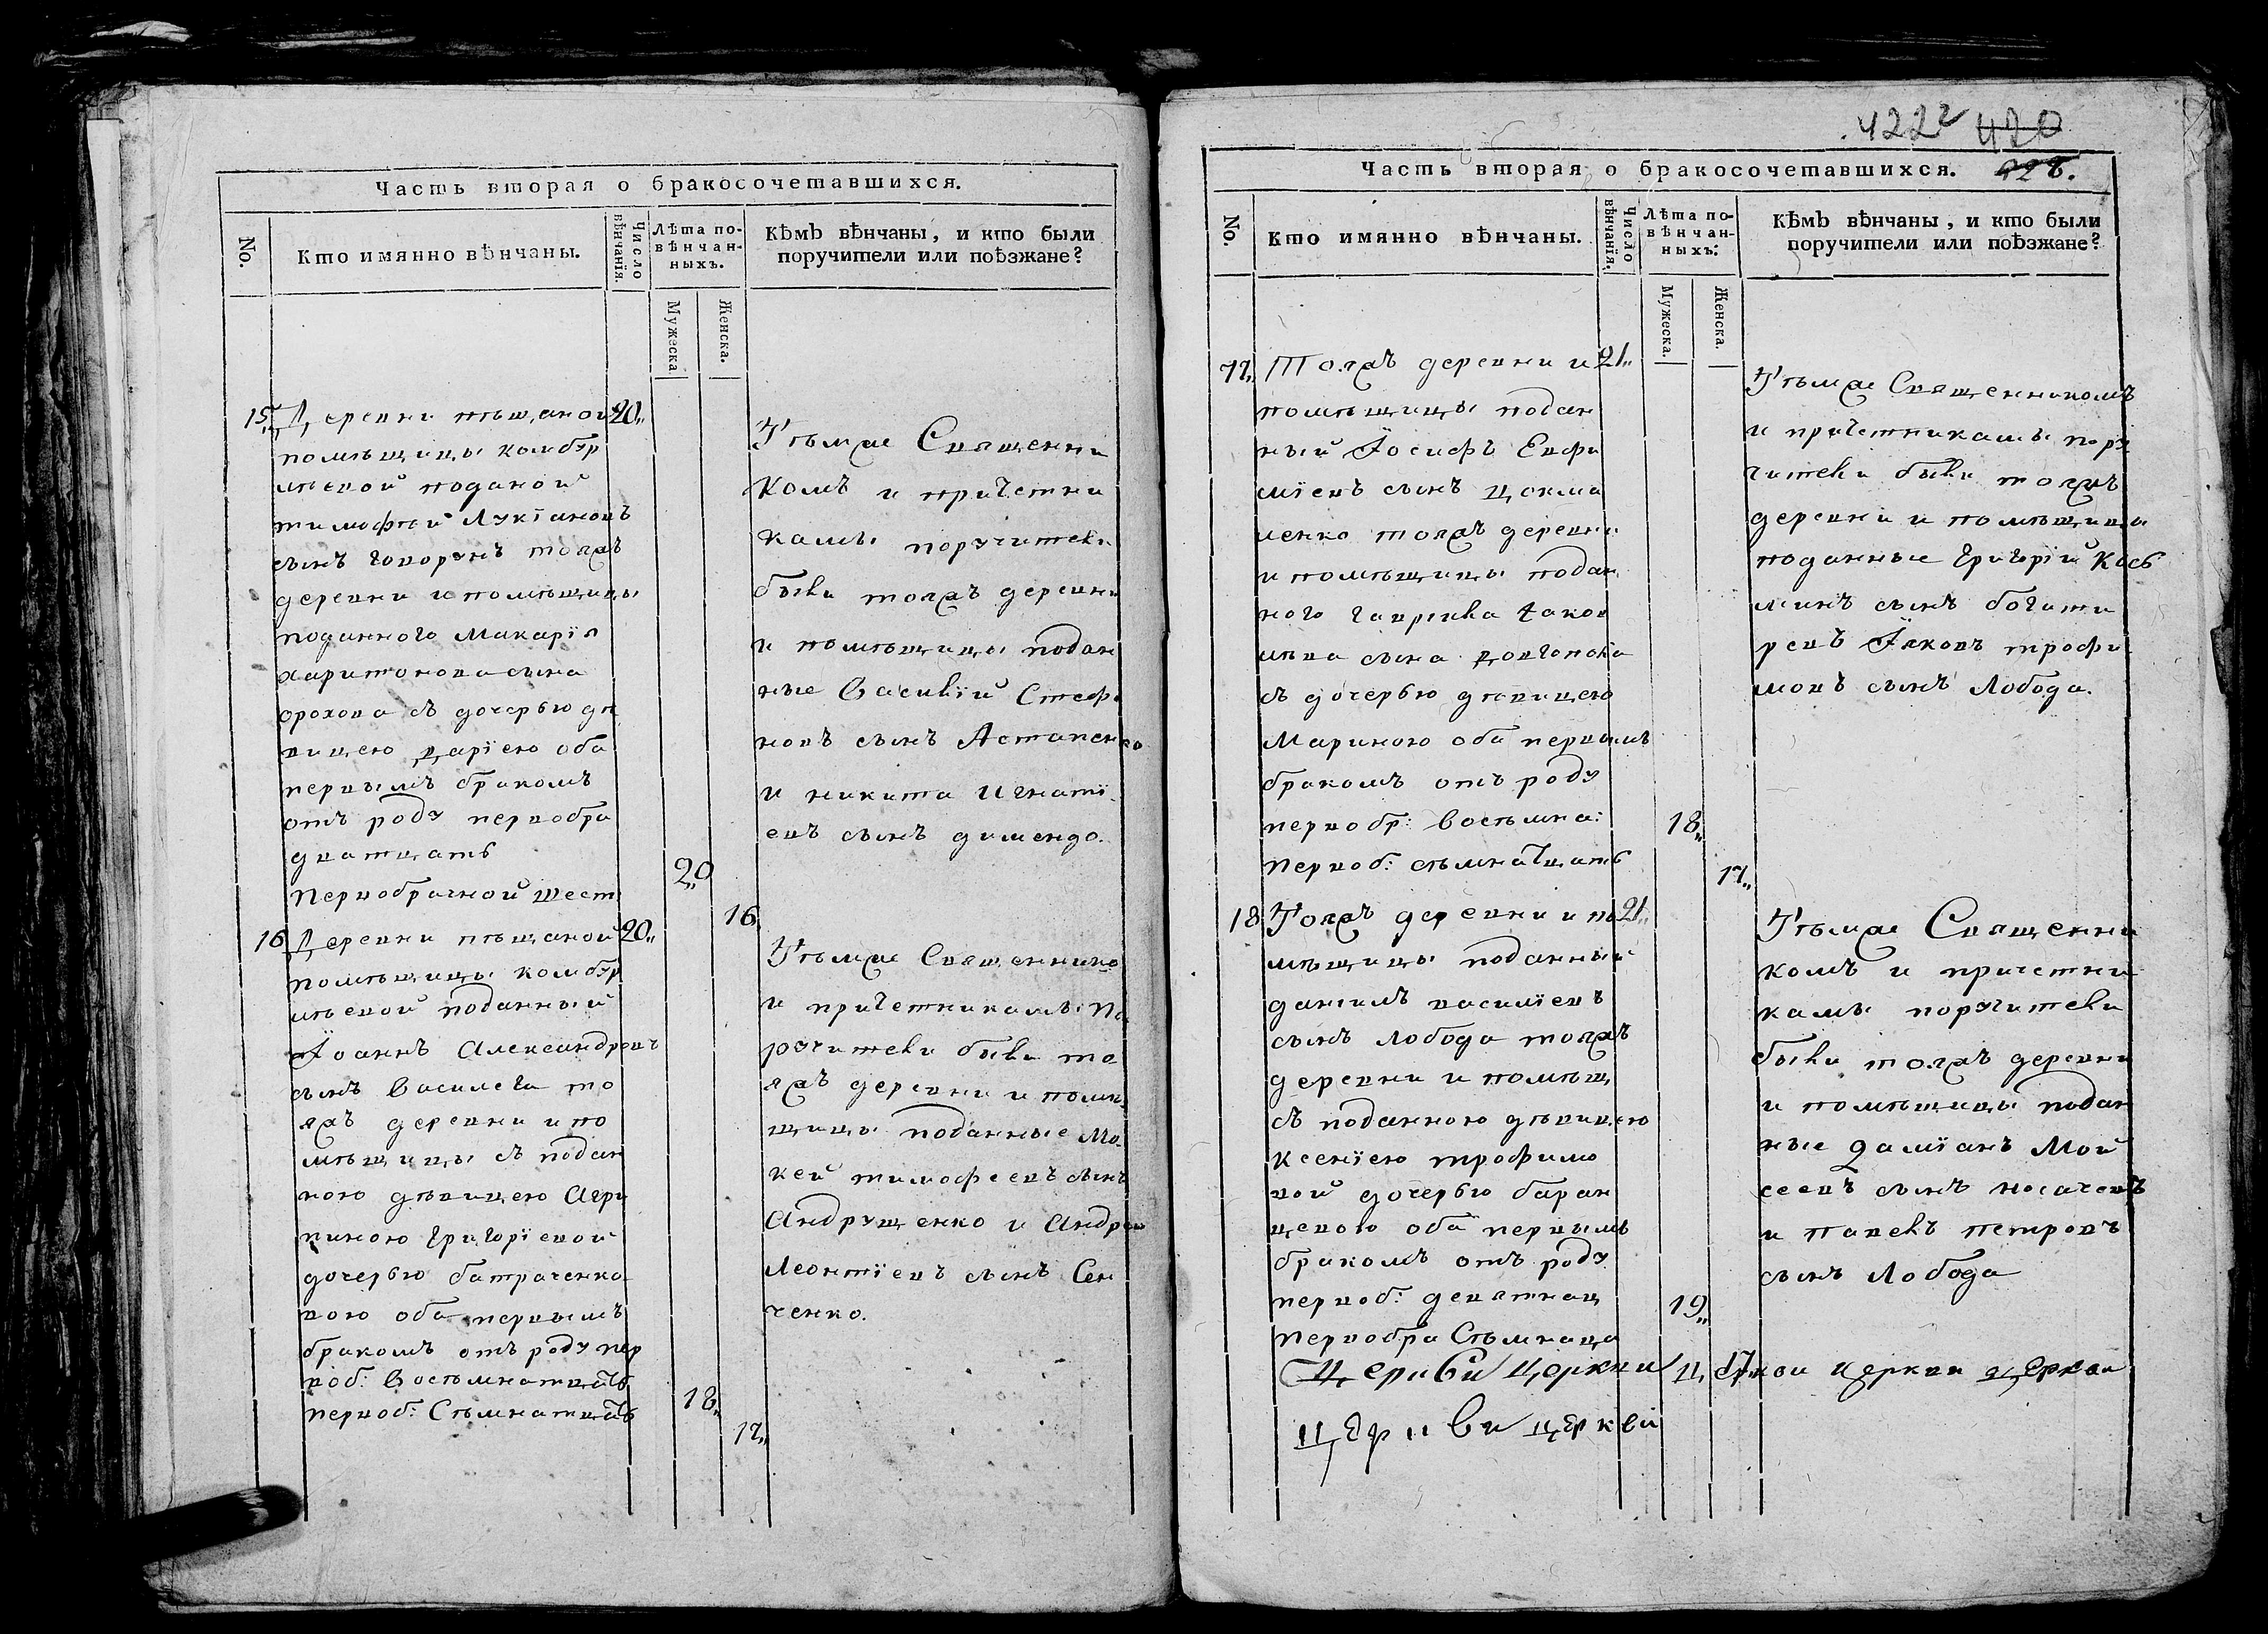 Часть вторая о бракосочетавшихся.
No.
Кто имянно вѣнчаны.
Число вѣнчанїя.
Лѣта по-
вѣнчан-
ныхъ.
Мужеска
Женска.
Кѣмъ вѣнчаны, и кто были
поручители или поѣзжане?
15. Деревни пѣщаной 20.
помѣщицы комбур
лѣевой поданой
тимофѣй Лукїановъ
сынъ говорунъ тояжъ
деревни и помѣщицы
поданного Макарїя
харитонова сына
орохова съ дочерью дѣ
вицею дарїею оба
первымъ бракомъ
отъ роду первобра
дватцать
20
Первобрачной шест
16
Тѣмже Священни
комъ и причетни
камы поручители
были тояжъ деревни
и помѣщицы подан
ные Василїй Стефа
новъ сынъ Астапенко
и никита Игнатї
евъ сынъ димендо.
16 Деревни пѣщаной 20.
помѣщицы комбур
лѣевой поданный
Їоаннъ Александровъ
сынъ Василега то
яжъ деревни и по
мѣщицы съ подан
ною дѣвицею Агри
пиною Григорїевой
дочерью батраченко
вою оба первымъ
бракомъ отъ роду пер
воб: Восѣмнатцать
18
первоб: Сѣмнатцать
17
Тѣмже Священнико
и причетникамы По
ручители были то
яжъ деревни и помѣ
щицы поданные Мо
кей тимофеевъ сынъ
Андрущенко и Андрей
Леонтїевъ сынъ Сен
ченко.
4222 420
Часть вторая о бракосочетавшихся.
No.
Кто имянно вѣнчаны.
Число вѣнчанїя.
Лѣта по-
вѣнчан-
ныхъ.
Мужеска.
Женска.
Кѣмъ вѣнчаны, и кто были
поручители или поѣзжане?
17. Тояжъ деревни и 21.
помѣщицы подан
ный Їосифъ Евфи
мїевъ сынъ
ченко тояжъ деревни
и помѣщицы подан
ного гаврила Їаков
лѣва сына
съ дочерью дѣвицею
Мариною оба первымъ
бракомъ отъ роду
первобр: Восѣмна:
18
первоб: сѣмнатцать
17
Тѣмже Священникомъ
и причетникамы пору
чители были тояжъ
деревни и помѣщицы
поданные Григорїй Кось
минъ сынъ богати
ревъ Їяковъ трофи
мовъ сынъ Лобода.
18 Тояжъ деревни и по 21.
мѣщицы поданный
данїилъ василїевъ
сынъ Лобода тояжъ
деревни и помѣщ
съ поданною дѣвицею
Ксенїею трофимо
вой дочерью баран
цевою оба первымъ
бракомъ отъ роду
первоб: девятнац
19
Первобра Сѣмнаца
17
Тѣмже Священни
комъ и причетни
камы поручители
были тояжъ деревни
и помѣщицы подан
ные Дамїанъ Мой
сеевъ сынъ Носачевъ
и павелъ петровъ
сынъ Лобода
церкви церкви
церкви церквй